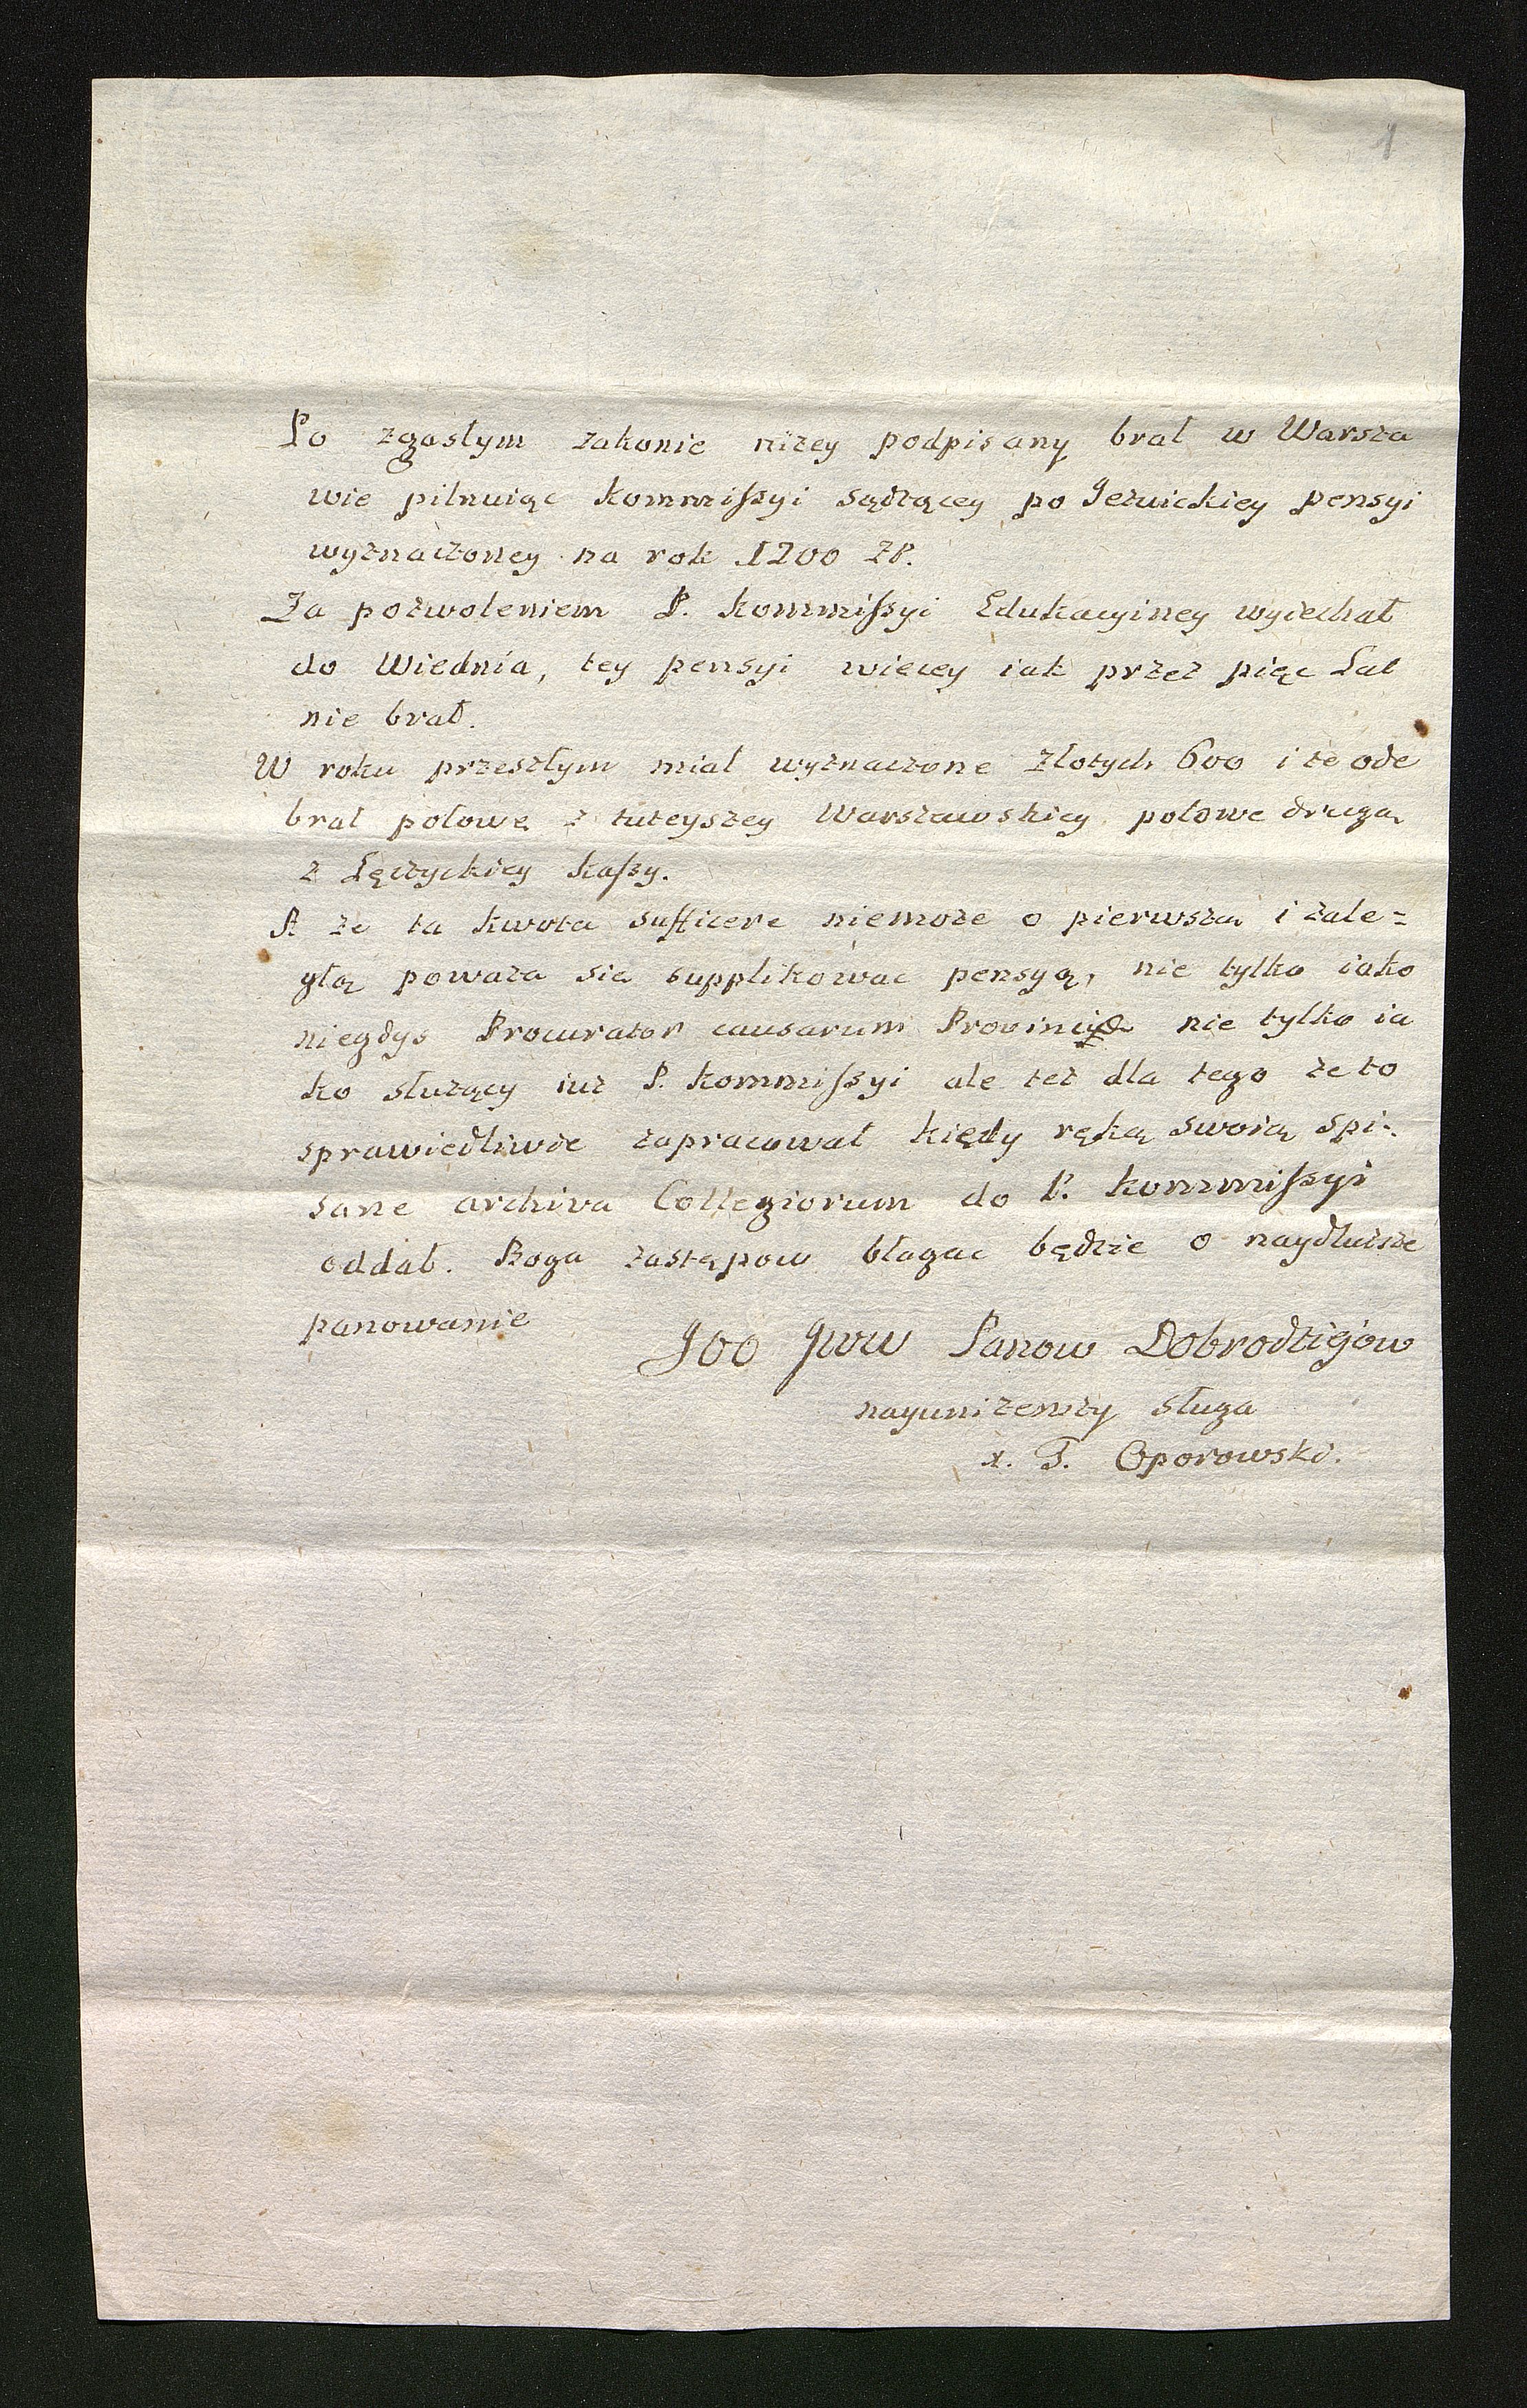 1
Po zgasłym zakonie niżey podpisany brał w Warsza
wie pilnuiąc Kommißyi sądzącey po Jezuickiey pensyi
wyznaczoney na rok 1200 ZP.
Za pozwoleniem P. Kommißyi Edukacyiney wyiechał
do Wiednia, tey pensyi wiecey iak przez pięc Lat
nie brał.
W roku przeszłym miał wyznaczone Złotych 600 i te ode
brał połowę z tuteyszey Warszawskiey połowe drugą
z Łęczyckiey kaßy.
A że ta kwota sufficere niemoże o pierwszą i zale=
głą poważa się supplikowac pensyą, nie tylko iako
niegdys Procurator causarum Provinciæ nie tylko ia
ko służący iuż P. Kommißyi ale też dla tego że to
sprawiedliwie zapracował kiędy ręką swoią spi-
sane archiva Collegiorum do P. Kommißyi
oddał. Boga zastępow błagac będzie o naydłuższe
panowanie
JOO JWW Panow Dobrodziejow
nayuniżenszy sługa
x. T. Oporowski.